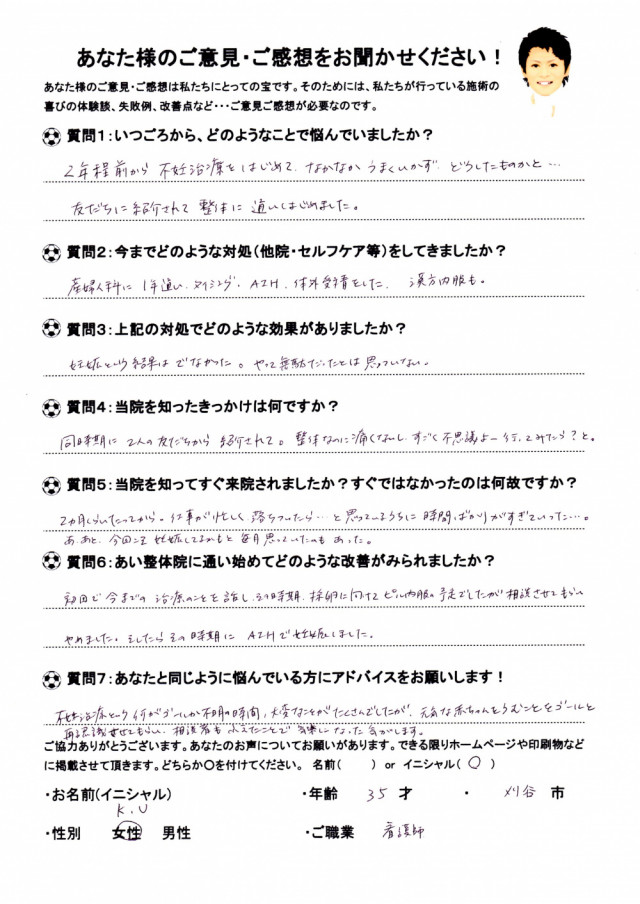 あなた様のご意見・ご感想をお聞かせください！
あなた様のご意見・ご感想は私たちにとっての宝です。そのためには、私たちが行っている施術の
喜びの体験談、失敗例、改善点など・・・ご意見ご感想が必要なのです。
質問1：いつごろから、どのようなことで悩んでいましたか？
2年程前から 不妊治療をはじめて、なかなか うまくいかず、どうしたものかと…
友だちに紹介されて 整体に 通いはじめました。
質問2：今までどのような対処（他院・セルフケア等）をしてきましたか？
産婦人科に 1年通い、タイミング、AIH、体外受精をした。 漢方内服も。
質問3：上記の対処でどのような効果がありましたか？
妊娠という結果は でなかった。やって無駄だったとは思っていない。
質問4：当院を知ったきっかけは何ですか？
同時期に 2人の友だちから 紹介されて。整体なのに痛くないし、すごく不思議よー行ってみたら？と。
質問5：当院を知ってすぐ来院されましたか？すぐではなかったのは何故ですか？
2カ月くらいたってから。仕事が忙しく 落ちついたら…と思っているうちに 時間ばかりがすぎていった…。
あ、あと、今回こそ 妊娠してるかもと 毎月思っていたのも あった。
質問6：あい整体院に通い始めてどのような改善がみられましたか？
初回で 今までの 治療のことを 話し、その時期、採卵に向けて ピル内服の予定でしたが 相談させてもらい
やめました。そしたら その時期に AIHで妊娠しました。
質問7：あなたと同じように悩んでいる方にアドバイスをお願いします！
不妊治療という 何がゴールか不明の時間、大変なことがたくさんでしたが、元気な赤ちゃんをうむことをゴールと
再認識させてもらい、相談者も ふえたことで 気楽に なった 気がします。
ご協力ありがとうございます。あなたのお声についてお願いがあります。できる限りホームページや印刷物など
に掲載させて頂きます。どちらか〇を付けてください。 名前（　　） or イニシャル（ ○ ）
・お名前（イニシャル） ・年齢 35 才 ・ 刈谷 市
K.U
・性別 女性 男性 ・ご職業 看護師